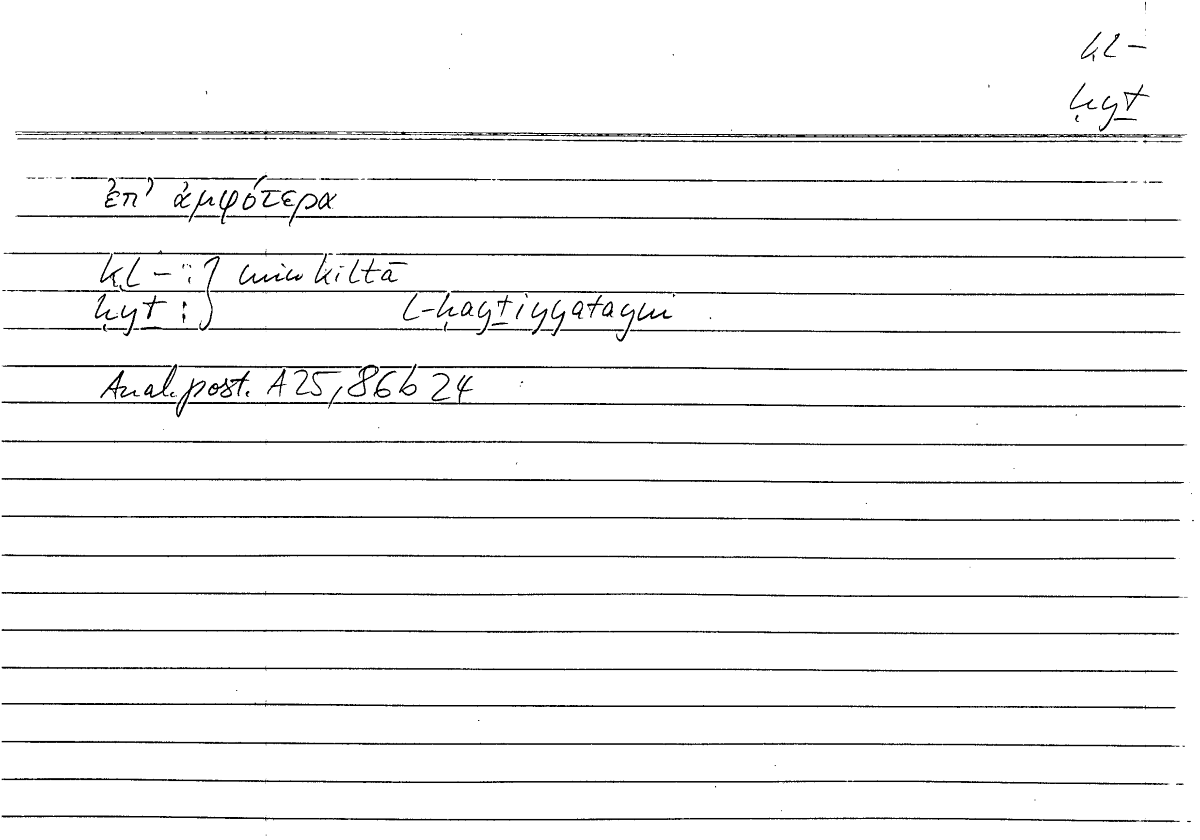 kl –
ḥyṯ
ἐπ’ ἀμφότερα
kl – : } min kiltā
ḥyṯ : } l-ḥayṯiyyatayni
Anal. post. A 25, 86b 24